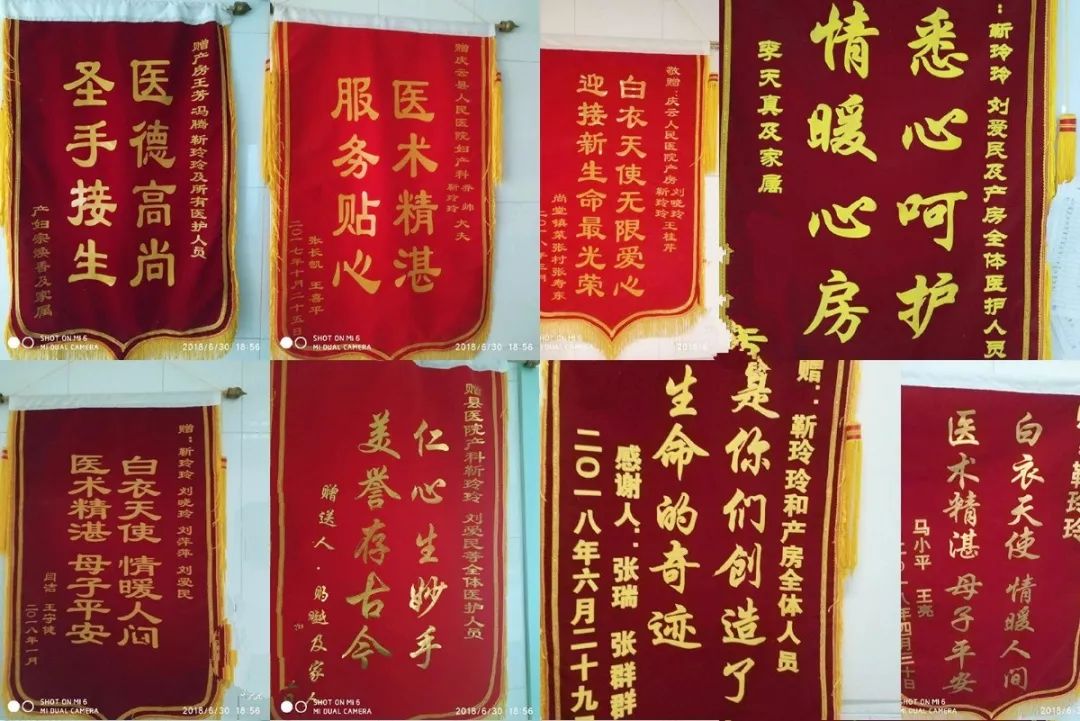 赠产房王芳 冯腾 靳玲玲及所有医护人员
医德高尚
圣手接生
产妇崇焕香及家属
SHOT ON MI 6
MI DUAL CAMERA
2018/6/30 18:56
赠庆云县人民医院妇产科乔帅 大夫
靳玲玲
医术精湛
服务贴心
张长凯 王喜平
二〇一七年十月二十五日
SHOT ON MI 6
MI DUAL CAMERA
2018/6/30 18:56
敬赠:庆云人民医院产房
刘晓玲
靳玲玲
王桂芹
白衣天使无限爱心
迎接新生命最光荣
尚堂镇菜张村张寿东
SHOT ON MI 6
DUAL CAMERA
2018/6
:靳玲玲 刘爱民及产房全体医护人员
悉心呵护
情暖心房
李天真及家属
赠:靳玲玲 刘晓玲 刘萍萍 刘爱民
白衣天使 情暖人间
医术精湛 母子平安
闫洁 王守健
二〇一八年一月
SHOT ON MI 6
MI DUAL CAMERA
2018/6/30 18:56
赠县医院产科靳玲玲 刘爱民等全体医护人员
仁心生妙手
美誉存古今
赠送人
及家人
SHOT ON MI 6
MI DUAL CAMERA
2018/6/30 18:56
赠:靳玲玲和产房全体人员
是你们创造了
生命的奇迹
感谢人:张瑞 张群群
二〇一八年六月二十九
靳玲玲
白衣天使 情暖人间
医术精湛 母子平安
马小平 王亮
二〇一八年四月二十日
SHOT ON MI 6
MI DUAL CAMERA